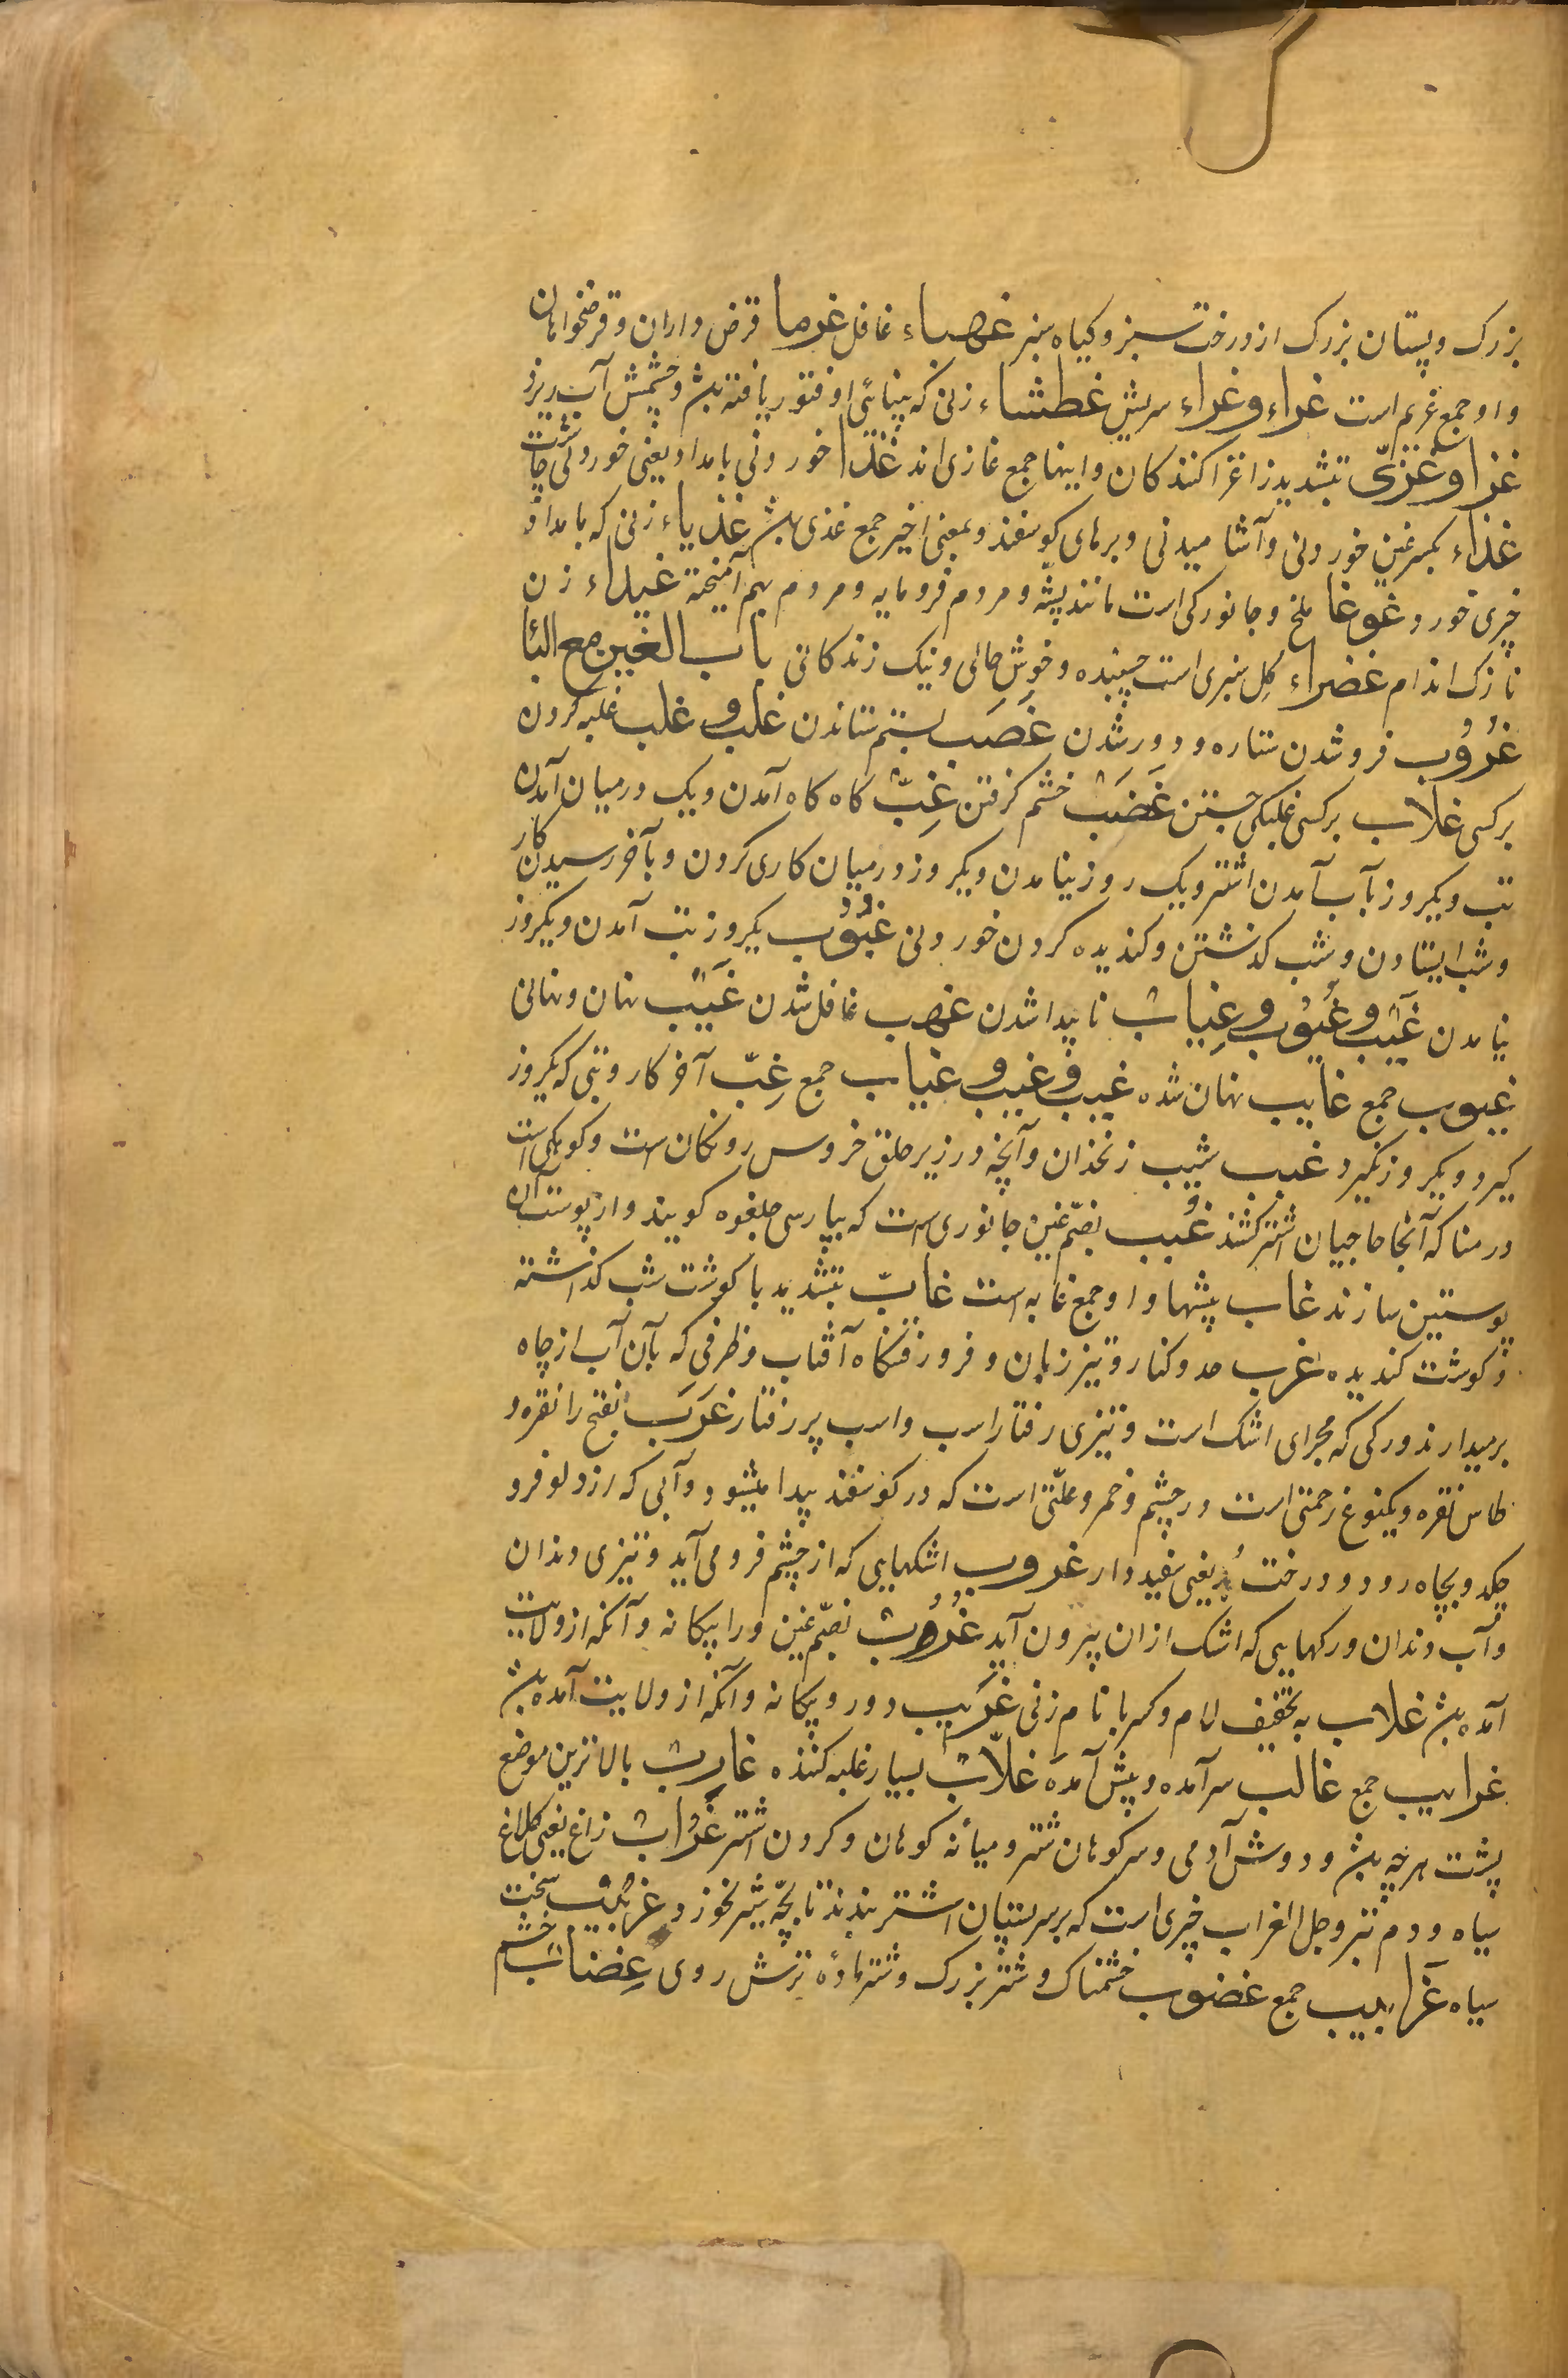 بزرک و پستان بزرک از درخت سبز و کیاه سبز غهباء غافل غرما قرض داران و قرضخواهان
و او جمع غریم است غراء و غراء سریش غطشاء زنی که بینائی او فتور یافته باشد و چشمش آب ریزد
غزا و غزّی بتشدید زا غزا کنندکان و اینها جمع غازی اند غذا خوردنی بامداد یعنی خوردنی چاشت
غذاء بکسر غین خوردنی و آشامیدنی و برهای کوسفند و بمعنی اخیر جمع غذی باشد غذیاء زنی که بامداد
چیزی خورد غوغا ملخ و جانورکی است مانند پشّه و مردم فرومایه و مردم بهم آمیخته غیداء زن
نازک اندام غضراء کِل سبزی است چسبنده و خوش حالی و نیک زندکانی باب الغین مع البا
غُرُوب فرو شدن ستاره و دور شدن غَصَب بستم ستاندن غلب و غلب غلبه کردن
بر کسی غلاب بر کسی غلبکی جستن غَضَب خشم کرفتن غِبّ کاه کاه آمدن و یک در میان آمدن
تب و یکروز بآب آمدن اشتر و یک روز نیامدن و یکروز در میان کاری کردن و بآخر رسیدن کار
و شب ایستادن و شب کذشتن و کندیده کردن خوردنی غُبُوب یکروز تب آمدن و یکروز
نیامدن غَیب و غُیُوب و غِیاب ناپیدا شدن غهب غافل شدن غَیب نهان و نهانی
غیوب جمع غایب نهان شده غیب و غیب و غیاب جمع غِبّ آخر کار و تبی که یکروز
کیرد و یکروز نکیرد غبب شیب زنخدان و آنچه در زیر حلق خروس رونکان است و کوهکی است
در منا که آنجا حاجیان اشتر کشند غُبب بضمّ غین جانوری است که بپارسی جلغوه کویند و از پوست آن
پوستین سازند غاب بیشها و او جمع غابه است غابّ بتشدید با کوشت شب کذاشته
و کوشت کندیده غرب حد و کنار و تیز زبان و فرو رفتنکاه آفتاب و ظرفی که بآن آب از چاه
بر میدارند و رکی که مجرای اشک است و تیزی رفتار اسب و اسب پر رفتار غَرَب بفتح را نقره و
طاس نقره و یکنوع زحمتی است در چشم و خمر و علّتی است که در کوسفند پیدا میشود و آبی که از دلو فرو
چکد و بچاه رود و درخت بُد یعنی سفیددار غروب اشکهایی که از چشم فرو می آید و تیزی دندان
و آب دندان و رکهایی که اشک از ان بیرون آید غُرُب بضمّ غین و را بیکانه و آنکه از ولایت
آمده باشد غلاب به تخفیف لام و کسر با نام زنی غَرِیب دور و بیکانه و آنکه از ولایت آمده باشد
غرایب جمع غالب سرآمده و پیش آمده غلّاب بسیار غلبه کننده غارب بالا ترین موضع
پشت هر چه باشد و دوش آدمی و سر کوهان شتر و میانه کوهان و کردن اشتر غُراب زاغ یعنی کلاغ
سیاه و دم تبر و جل الغراب چیزی است که بر سر پستان اشتر بندند تا بچّه شیر نخورد غربیب سخت
سیاه غَرابیب جمع غضوب خشمناک و شتر بزرک و شتر مادهٔ ترش روی غِضاب خشم